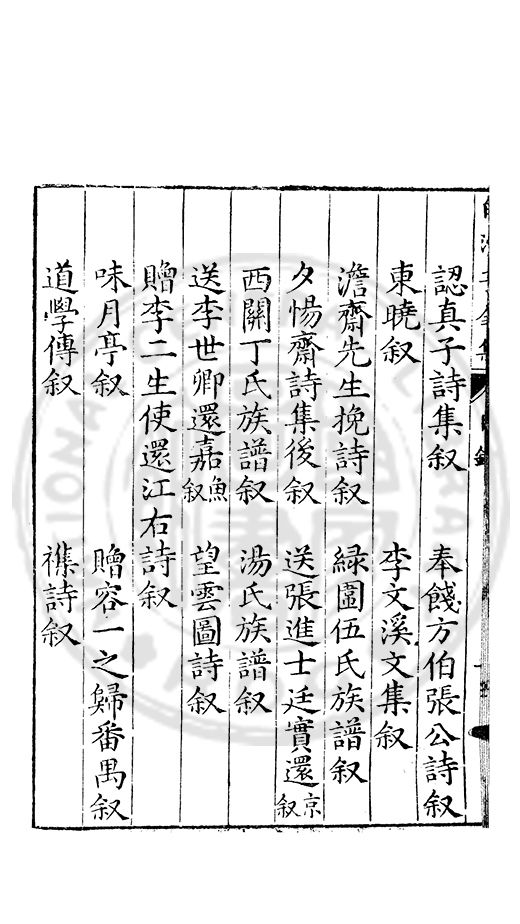 認真子詩集叙　奉餞方伯張公詩叙
東曉叙　李文溪文集叙
澹齋先生挽詩叙　綠圍伍氏族譜叙
夕惕齋詩集後叙　送張進士廷實還京叙
西關丁氏族譜叙　湯氏族譜叙
送李世卿還嘉魚叙　望雲圖詩叙
贈李二生使還江右詩叙
味月亭叙　贈容一之歸番禺叙
道學傳叙　襍詩叙